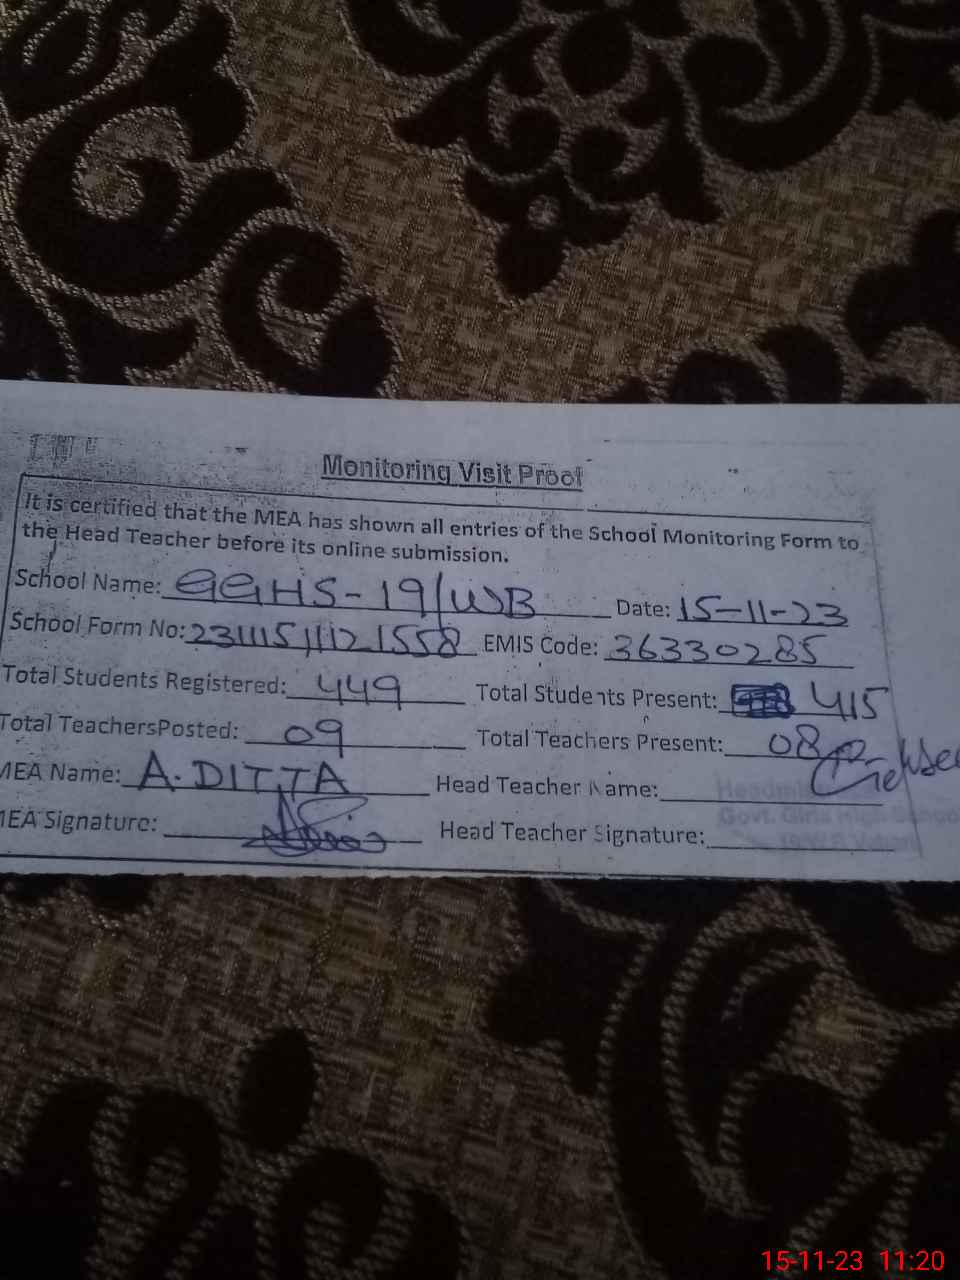 Monitoring Visit Proof
It is certified that the MEA has shown all entries of the School Monitoring Form to
the Head Teacher before its online submission.
School Name: GGHS-19/WB Date: 15-11-23
School Form No: 23111511121558 EMIS Code: 36330285
Total Students Registered: 449 Total Students Present: 415
Total TeachersPosted: 09 Total Teachers Present: 08
MEA Name: A.DITTA Head Teacher Name:
Govt. Girls High School
MEA Signature: Head Teacher Signature:
15-11-23 11:20